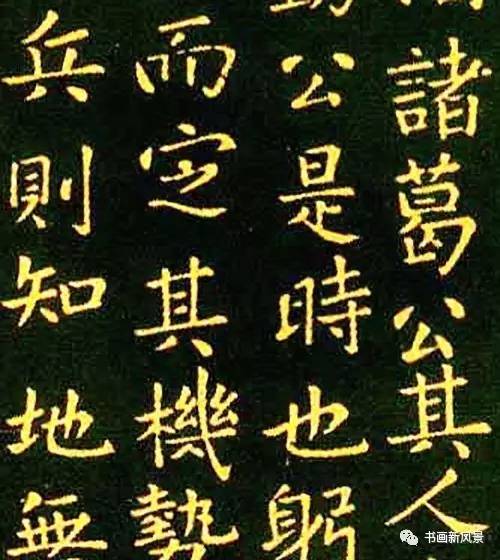 諸葛公其人
公是時也躬
而定其機勢
兵則知地無
书画新风景